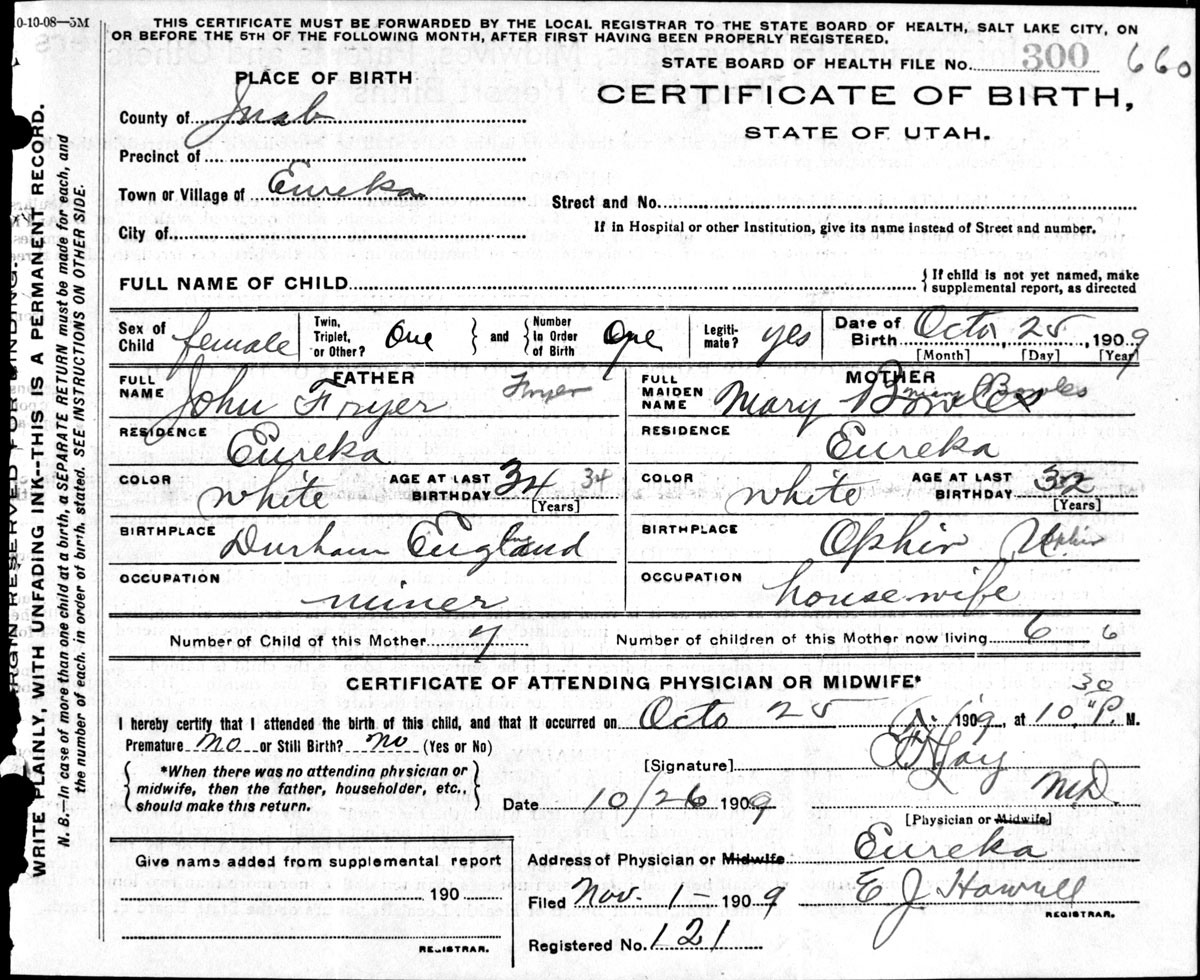 0-10-08—3M
THIS CERTIFICATE MUST BE FORWARDED BY THE LOCAL REGISTRAR TO THE STATE BOARD OF HEALTH, SALT LAKE CITY, ON
OR BEFORE THE 5TH OF THE FOLLOWING MONTH, AFTER FIRST HAVING BEEN PROPERLY REGISTERED.
STATE BOARD OF HEALTH FILE No. 300 660
PLACE OF BIRTH
CERTIFICATE OF BIRTH,
STATE OF UTAH.
County of Juab
Precinct of
Town or Village of Eureka
Street and No.
City of
If in Hospital or other Institution, give its name instead of Street and number.
FULL NAME OF CHILD
{ If child is not yet named, make
supplemental report, as directed
Sex of Child female
Twin, Triplet, or Other? One } and { Number In Order of Birth One
Legitimate? yes
Date of Birth Octo, 25, 1909
[Month] [Day] [Year]
FATHER
FULL NAME John Fryer Fryer
RESIDENCE Eureka
COLOR white AGE AT LAST BIRTHDAY 34 34 [Years]
BIRTHPLACE Durham England
OCCUPATION miner
MOTHER
FULL MAIDEN NAME Mary Bowles Bowles
RESIDENCE Eureka
COLOR white AGE AT LAST BIRTHDAY 32 [Years]
BIRTHPLACE Ophir Ophir
OCCUPATION housewife
Number of Child of this Mother 7 Number of children of this Mother now living 6 6
CERTIFICATE OF ATTENDING PHYSICIAN OR MIDWIFE*
I hereby certify that I attended the birth of this child, and that it occurred on Octo 25 1909, at 10 30 P. M.
Premature no or Still Birth? no (Yes or No)
{ *When there was no attending physician or
midwife, then the father, householder, etc.,
should make this return. }
[Signature] M.D.
Date 10/26 1909
[Physician or Midwife]
Address of Physician or Midwife Eureka
Give name added from supplemental report
190
REGISTRAR.
Filed Nov. 1- 1909 E J Howell
REGISTRAR.
Registered No. 121
MARGIN RESERVED FOR BINDING.
WRITE PLAINLY, WITH UNFADING INK--THIS IS A PERMANENT RECORD.
N. B.—In case of more than one child at a birth, a SEPARATE RETURN must be made for each, and
the number of each, in order of birth, stated. SEE INSTRUCTIONS ON OTHER SIDE.